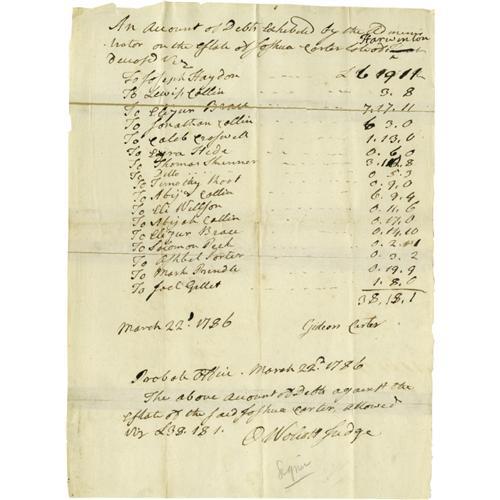 An Account of Debts Exhibited by the Administrator
Harwinton
trator on the Estate of Joshua Carter late of
Deceasd Viz
To Joseph Haydon £6 19 11
To Lewis Collin 3.8
To Elizur Brace 7.17.11
To Jonathan Collin 6 3.0
To Caleb Croswell 1.13.0
To Ezra Hide 0.6.0
To Thomas Skinner 3.16.8
To Ditto 0.5.3
To Timothy Root 0.9.0
To Abijah Collin 6.9.4
To Eli Willson 0.11.6
To Abijah Collin 0.17.0
To Elizur Brace 0.14.10
To Solomon Peck 0.2.
To Ashbel Porter 0.3.2
To Mark Prindle 0.19.9
To Joel Gillet 1.8.0
38.18.1
March 22d 1786 Gideon Carter
Probate Office. March 22d 1786
The above Account of Debts against the
Estate of the said Joshua Carter, allowed
Viz £38.18.1.
O Wolcott Judge
Signer